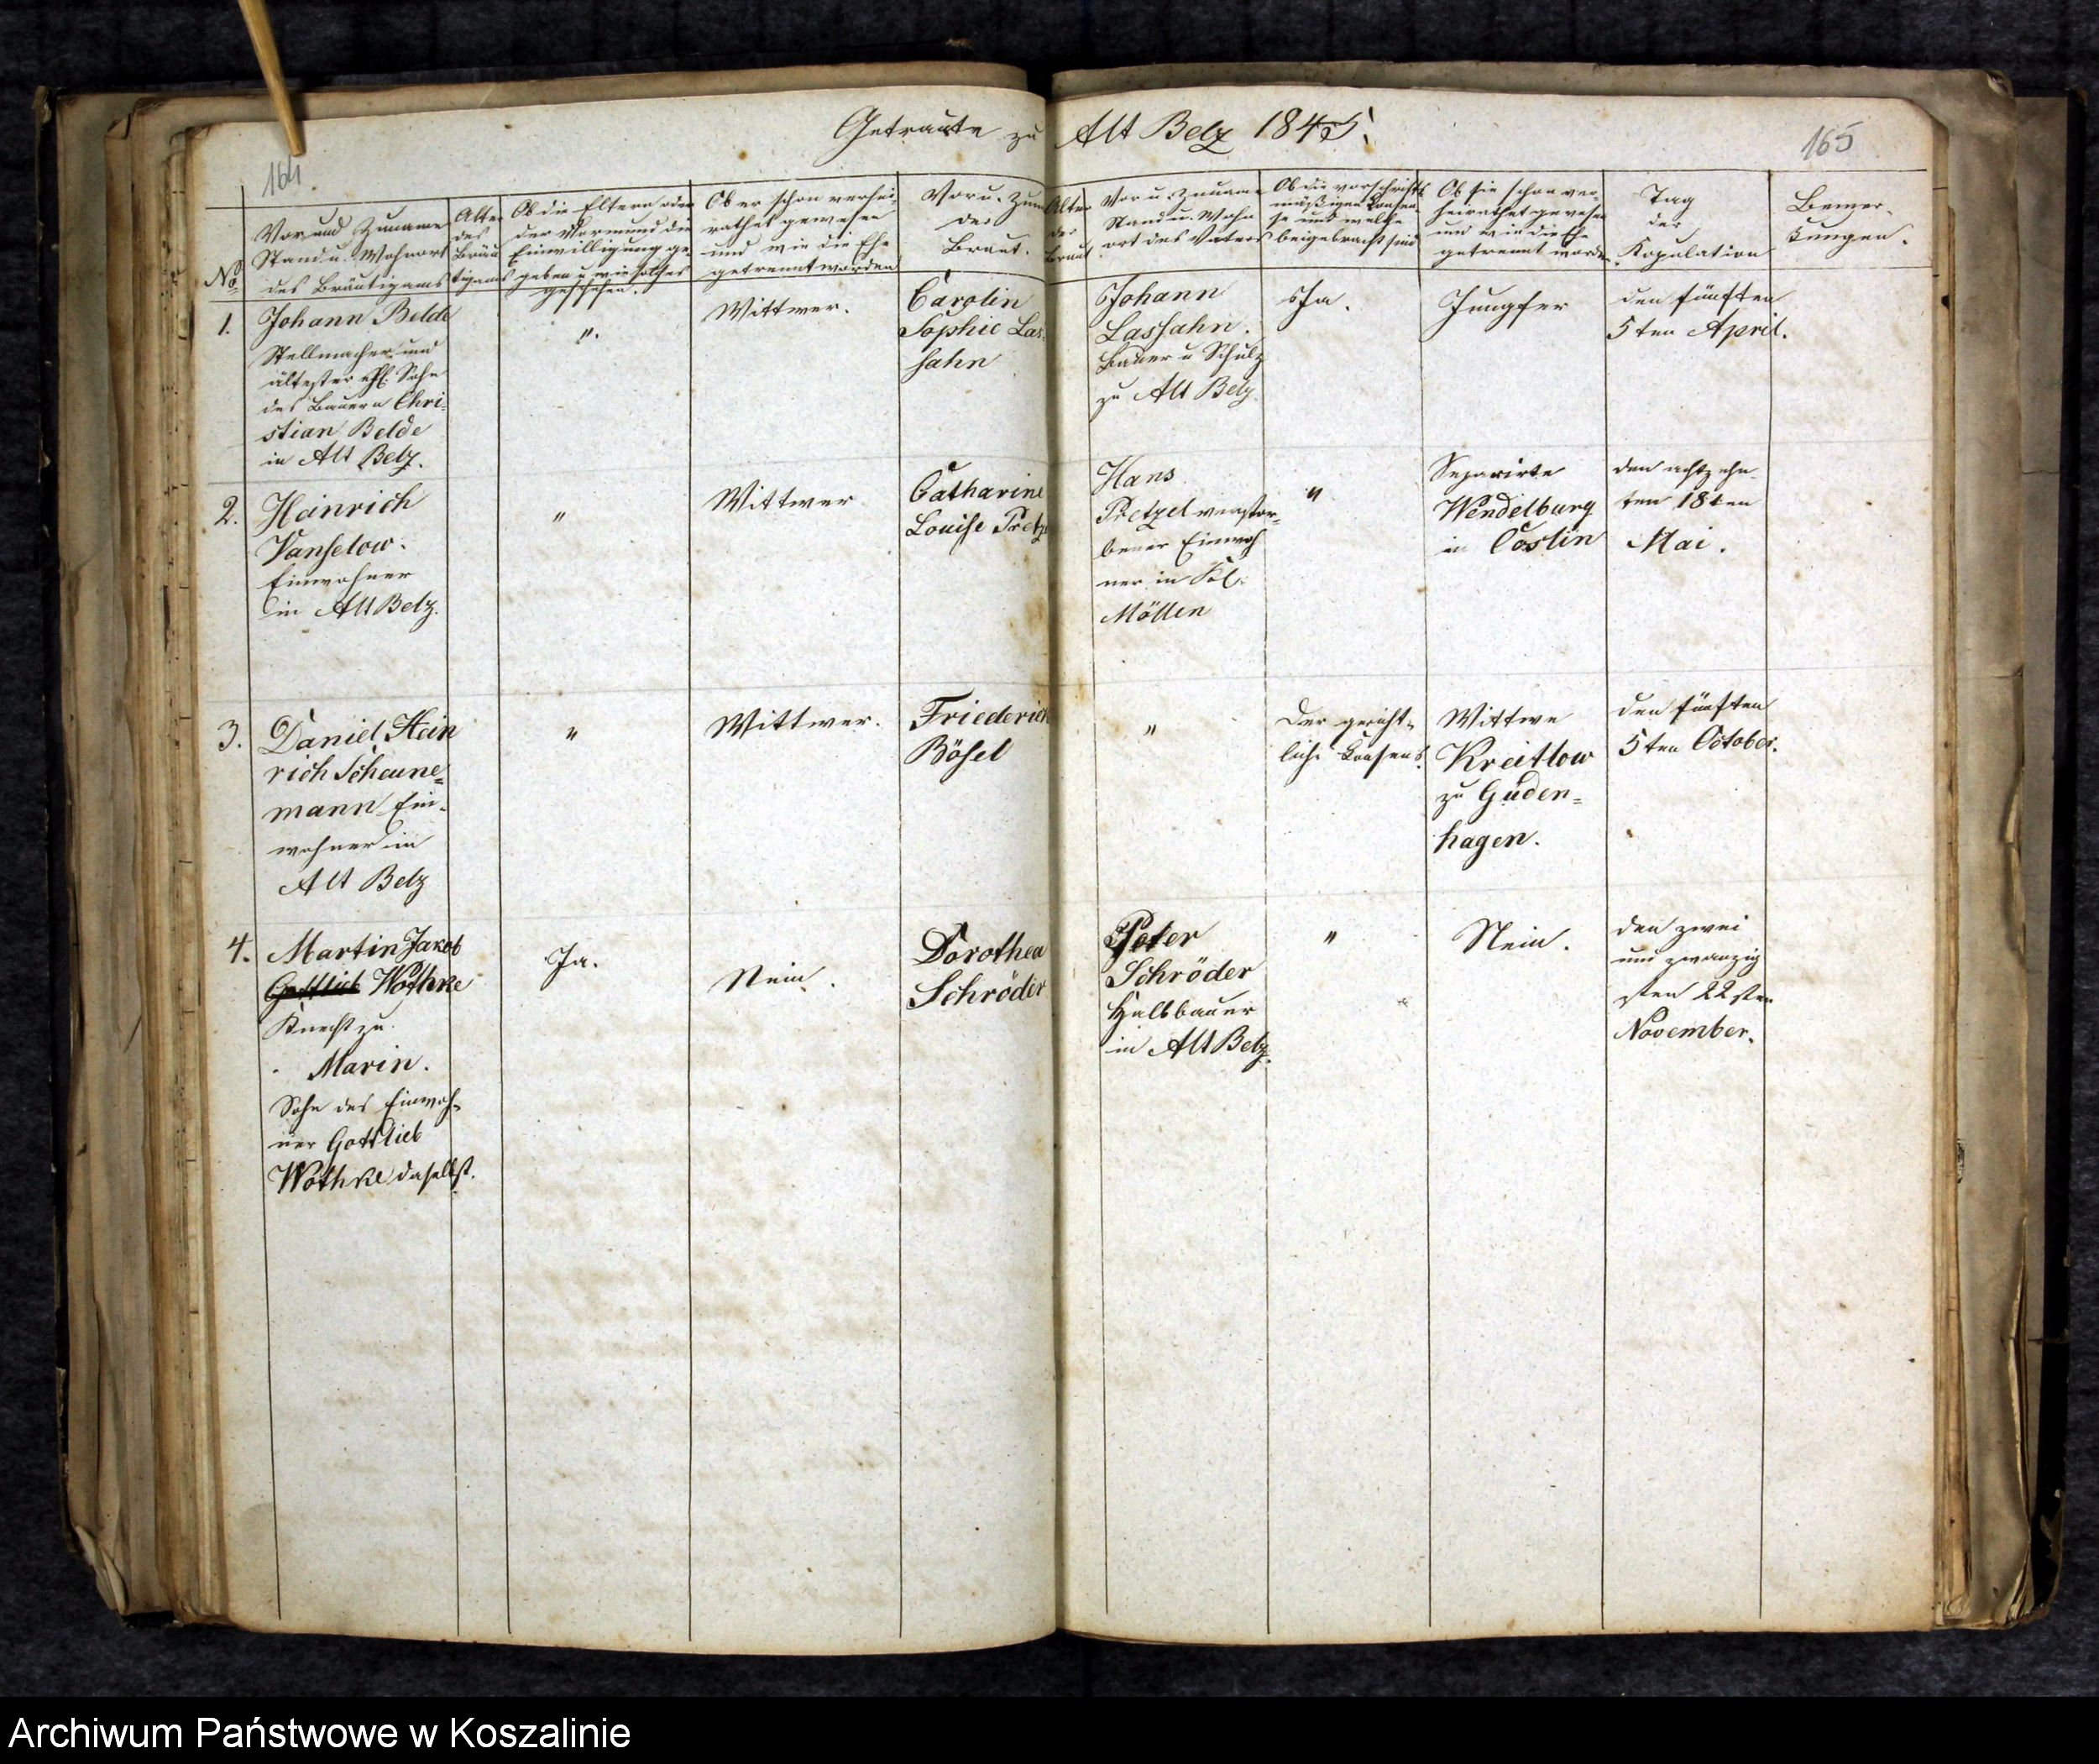 Getraute zu Alt Belz 1845.
164
165
No
Vor und Zuname
Stand u. Wohnort
des Bräutigams
Alter
des
Bräu
tigams
Ob die Eltern oder
der Vormund die
Einwilligung ge-
geben u. wie solches
geschehen.
Ob er schon verhei
rathet gewesen
und wie die Ehe
getrennt worden
Vor u. Zun
der
Braut.
Alter
der
Braut
Vor u. Zuname
Stand u. Wohn
ort des Vaters
Ob die vorschrifts
mäßigen Konsen-
se und welche
beigebracht sind
Ob sie schon ver-
heirathet gewesen
und wie die Ehe
getrennt worden
Tag
der
Kopulation
Bemer-
kungen.
1.
Johann Belde
Stellmacher und
ältester ehl. Sohn
des Bauern Chri-
stian Belde
in Alt Belz.
".
Wittwer.
Carolin
Sophie Las-
sahn
Johann
Lassahn.
Bauer u Schulz
zu Alt Belz.
Ja.
Jungfer
den fünften
5ten April.
2.
Heinrich
Vanselow.
Einwohner
in Alt Belz.
"
Wittwer
Catharine
Louise Pretz
Hans
Pretzel verstor-
bener Einwoh
ner in Kl.
Möllen
"
Separirte
Wendelburg
in Cöslin
den achtzehn-
ten 18ten
Mai.
3.
Daniel Hein
rich Scheune-
mann Ein-
wohner in
Alt Belz
"
Wittwer.
Friederich
Bösel
"
Der gericht-
liche Consens.
Wittwe
Kreitlow
zu Güden-
hagen.
den fünften
5ten October.
4.
Martin Jakob
Gottlieb Wothke
Knecht zu
Marin.
Sohn des Einwoh-
ner Gottlieb
Wothke daselbst.
Ja.
Nein.
Dorothea
Schröder
Peter
Schröder
Halbbauer
in Alt Belz.
"
Nein.
den zwei
und zwanzig
sten 22sten
November.
Archiwum Państwowe w Koszalinie